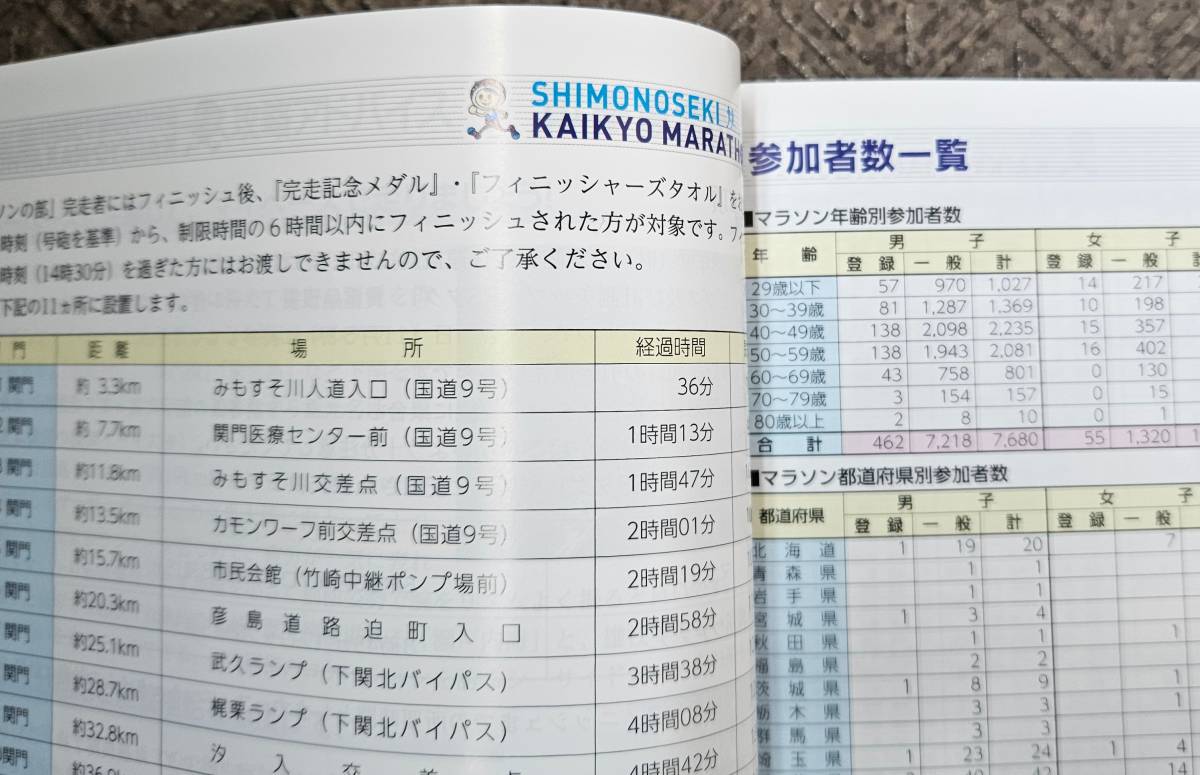 SHIMONOSEKI
KAIKYO MARATH
ソンの部」完走者にはフィニッシュ後、『完走記念メダル』・『フィニッシャーズタオル』を
時刻（号砲を基準）から、制限時間の６時間以内にフィニッシュされた方が対象です。フィ
時刻（14時30分）を過ぎた方にはお渡しできませんので、ご了承ください。
下記の11ヵ所に設置します。
門 距離 場所 経過時間
関門 約 3.3km みもすそ川人道入口（国道９号） 36分
2 関門 約 7.7km 関門医療センター前（国道９号） 1時間13分
関門 約11.8km みもすそ川交差点（国道９号） 1時間47分
関門 約13.5km カモンワーフ前交差点（国道９号） 2時間01分
関門 約15.7km 市民会館（竹崎中継ポンプ場前） 2時間19分
関門 約20.3km 彦島道路迫町入口 2時間58分
関門 約25.1km 武久ランプ（下関北バイパス） 3時間38分
関門 約28.7km 梶栗ランプ（下関北バイパス） 4時間08分
関門 約32.8km 汐入交差点 4時間42分
関門
参加者数一覧
■マラソン年齢別参加者数
年齢 男子 女子
登録 一般 計 登録 一般
29歳以下 57 970 1,027 14 217
30〜39歳 81 1,287 1,369 10 198
40〜49歳 138 2,098 2,235 15 357
50〜59歳 138 1,943 2,081 16 402
60〜69歳 43 758 801 0 130
70〜79歳 3 154 157 0 15
80歳以上 2 8 10 0 1
合計 462 7,218 7,680 55 1,320 1
■マラソン都道府県別参加者数
都道府県 男子 女子
登録 一般 計 登録 一般
北海道 1 19 20 7
青森県 1 1
岩手県 1 1
宮城県 1 3 4
秋田県 1 1 1
福島県 2 2
茨城県 1 8 9 1
栃木県 3 3 1
群馬県 3 3
埼玉県 1 23 24 1 4
14